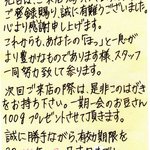 ご登録賜り、誠に有難うございました。
心より感謝申し上げます。
これからも、あなたの「ほっ」と一息が
より豊かなものであります様、スタッフ
一同努力致して参ります。
次回ご来店の際は、是非このはがき
をお持ち下さい。一期一会のお皿さん
100gプレゼントさせて頂きます。
誠に勝手ながら有効期限を